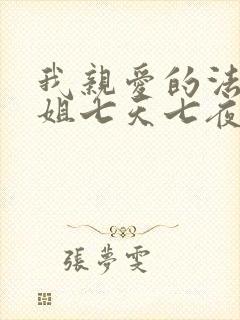 我親愛的法
姐七天七夜
張夢雯